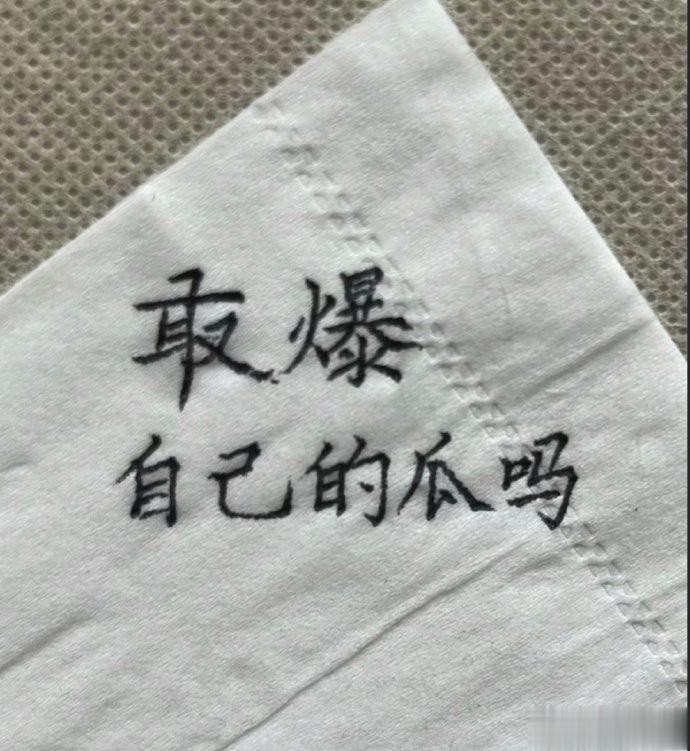 敢爆
自己的瓜吗